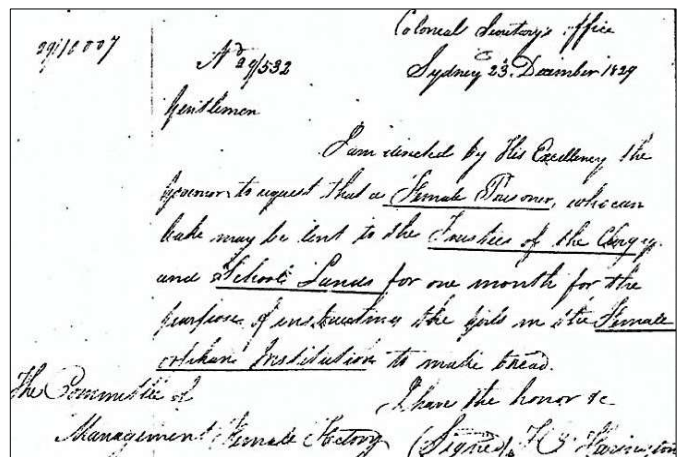 Colonial Secretary's Office
29/10007
No 29/532
Sydney 23. December 1829
Gentlemen
I am directed by His Excellency the
Governor to request that a Female Prisoner, who can
bake may be lent to the Trustees of the Clergy
and School Lands for one month for the
purpose of instructing the girls in the Female
Orphan Institution to make bread.
The Committee of
I have the honor &c
Management Female Factory (Signed) Harington